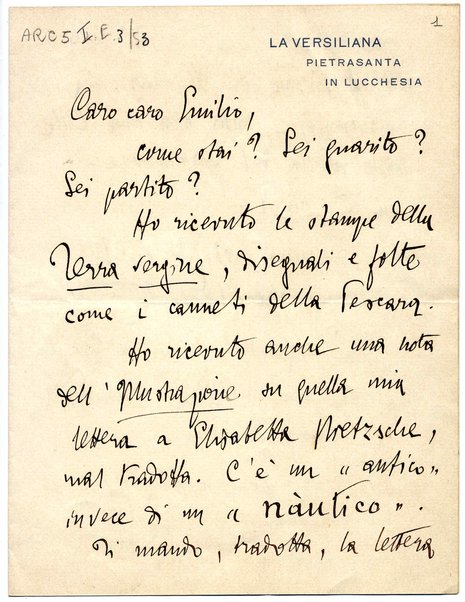 ARC 5 II.E.3/53
1
LA VERSILIANA
PIETRASANTA
IN LUCCHESIA
Caro caro Emilio,
come stai? Sei guarito?
Sei partito?
Ho ricevuto le stampe della
Terra vergine, diseguali e folte
come i canneti della Pescara.
Ho ricevuto anche una nota
dell'Illustrazione su quella mia
lettera a Elisabetta Nietzsche,
mal tradotta. C'è un "antico"
invece di un "nàutico".
Ti mando, tradotta, la lettera